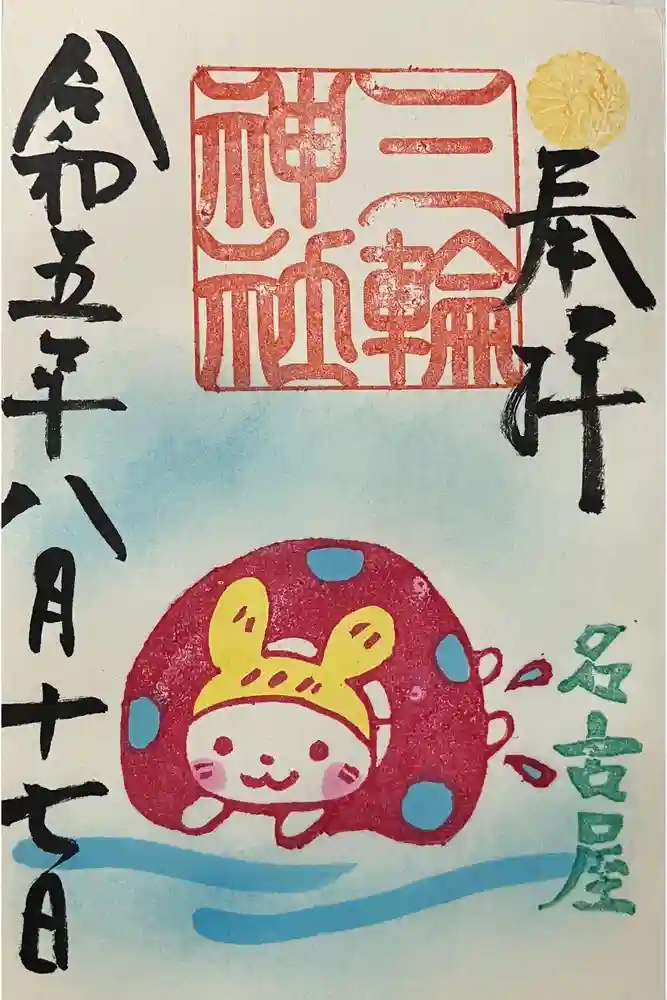 奉拝
三輪
神社
名古屋
令和五年八月十七日